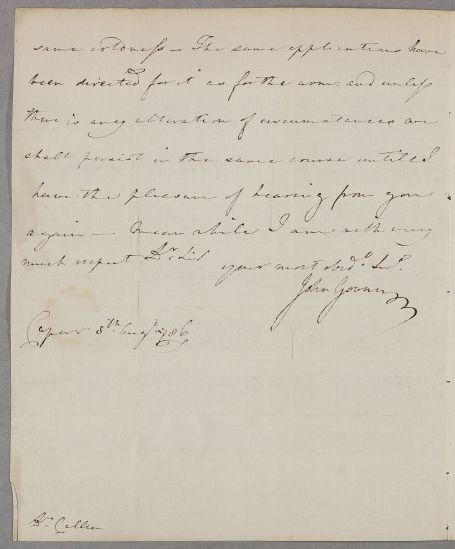 same coldness – The same applications have
been directed for it as for the arm; and unless
there is any alteration of circumstances we
shall persist in the same course untill I
have the pleasure of hearing from you
again – Mean while I am with very
much respect Dr Sir
your most obedt. Sert.
John Govan
Cupar 8th Augt. 1786
Dr Cullen